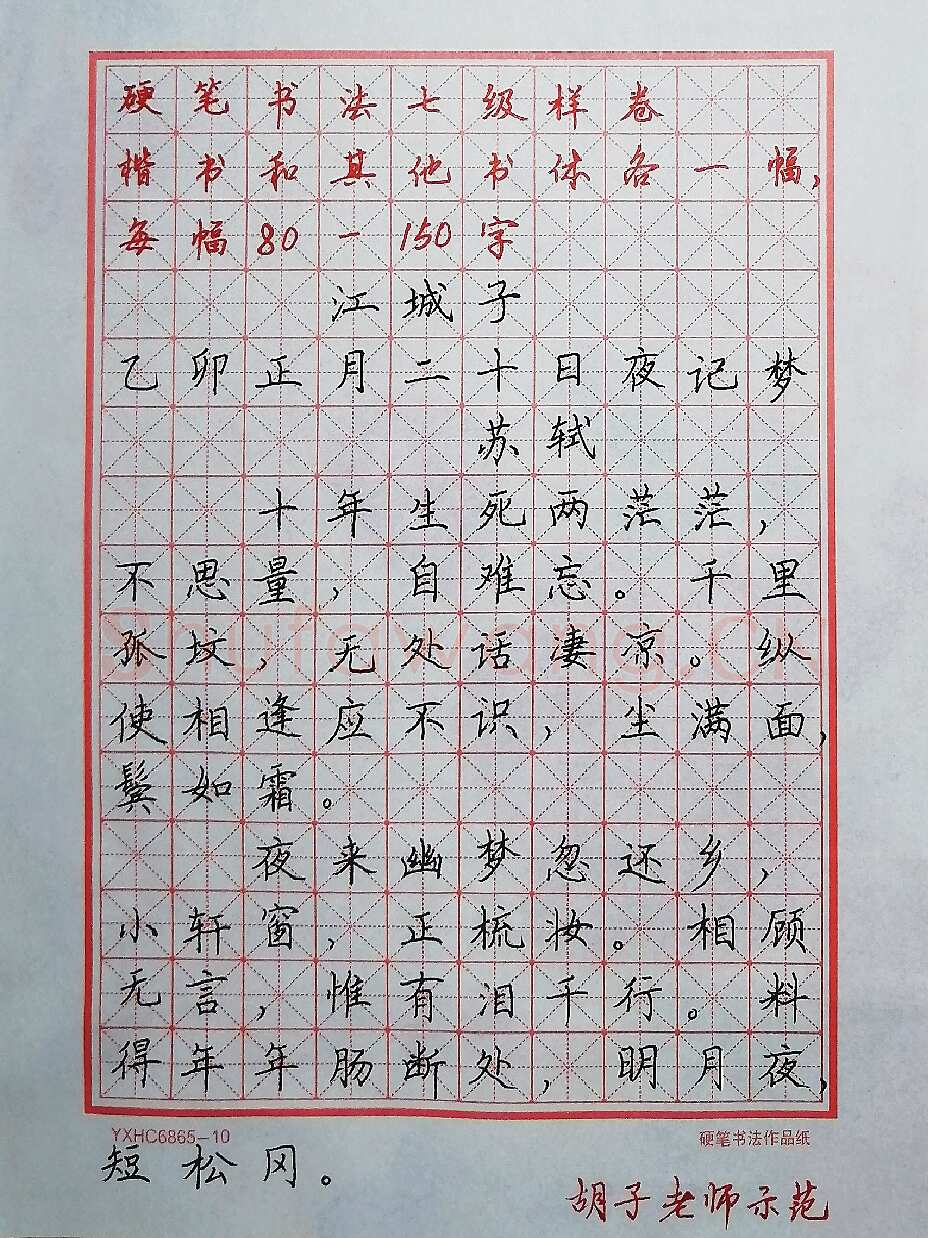 硬笔书法七级样卷
楷书和其他书体各一幅,
每幅80-150字
江城子
乙卯正月二十日夜记梦
苏轼
十年生死两茫茫,
不思量,自难忘。千里
孤坟,无处话凄凉。纵
使相逢应不识,尘满面,
鬓如霜。
夜来幽梦忽还乡,
小轩窗,正梳妆。相顾
无言,惟有泪千行。料
得年年肠断处,明月夜,
YXHC6865-10 硬笔书法作品纸
短松冈。
胡子老师示范